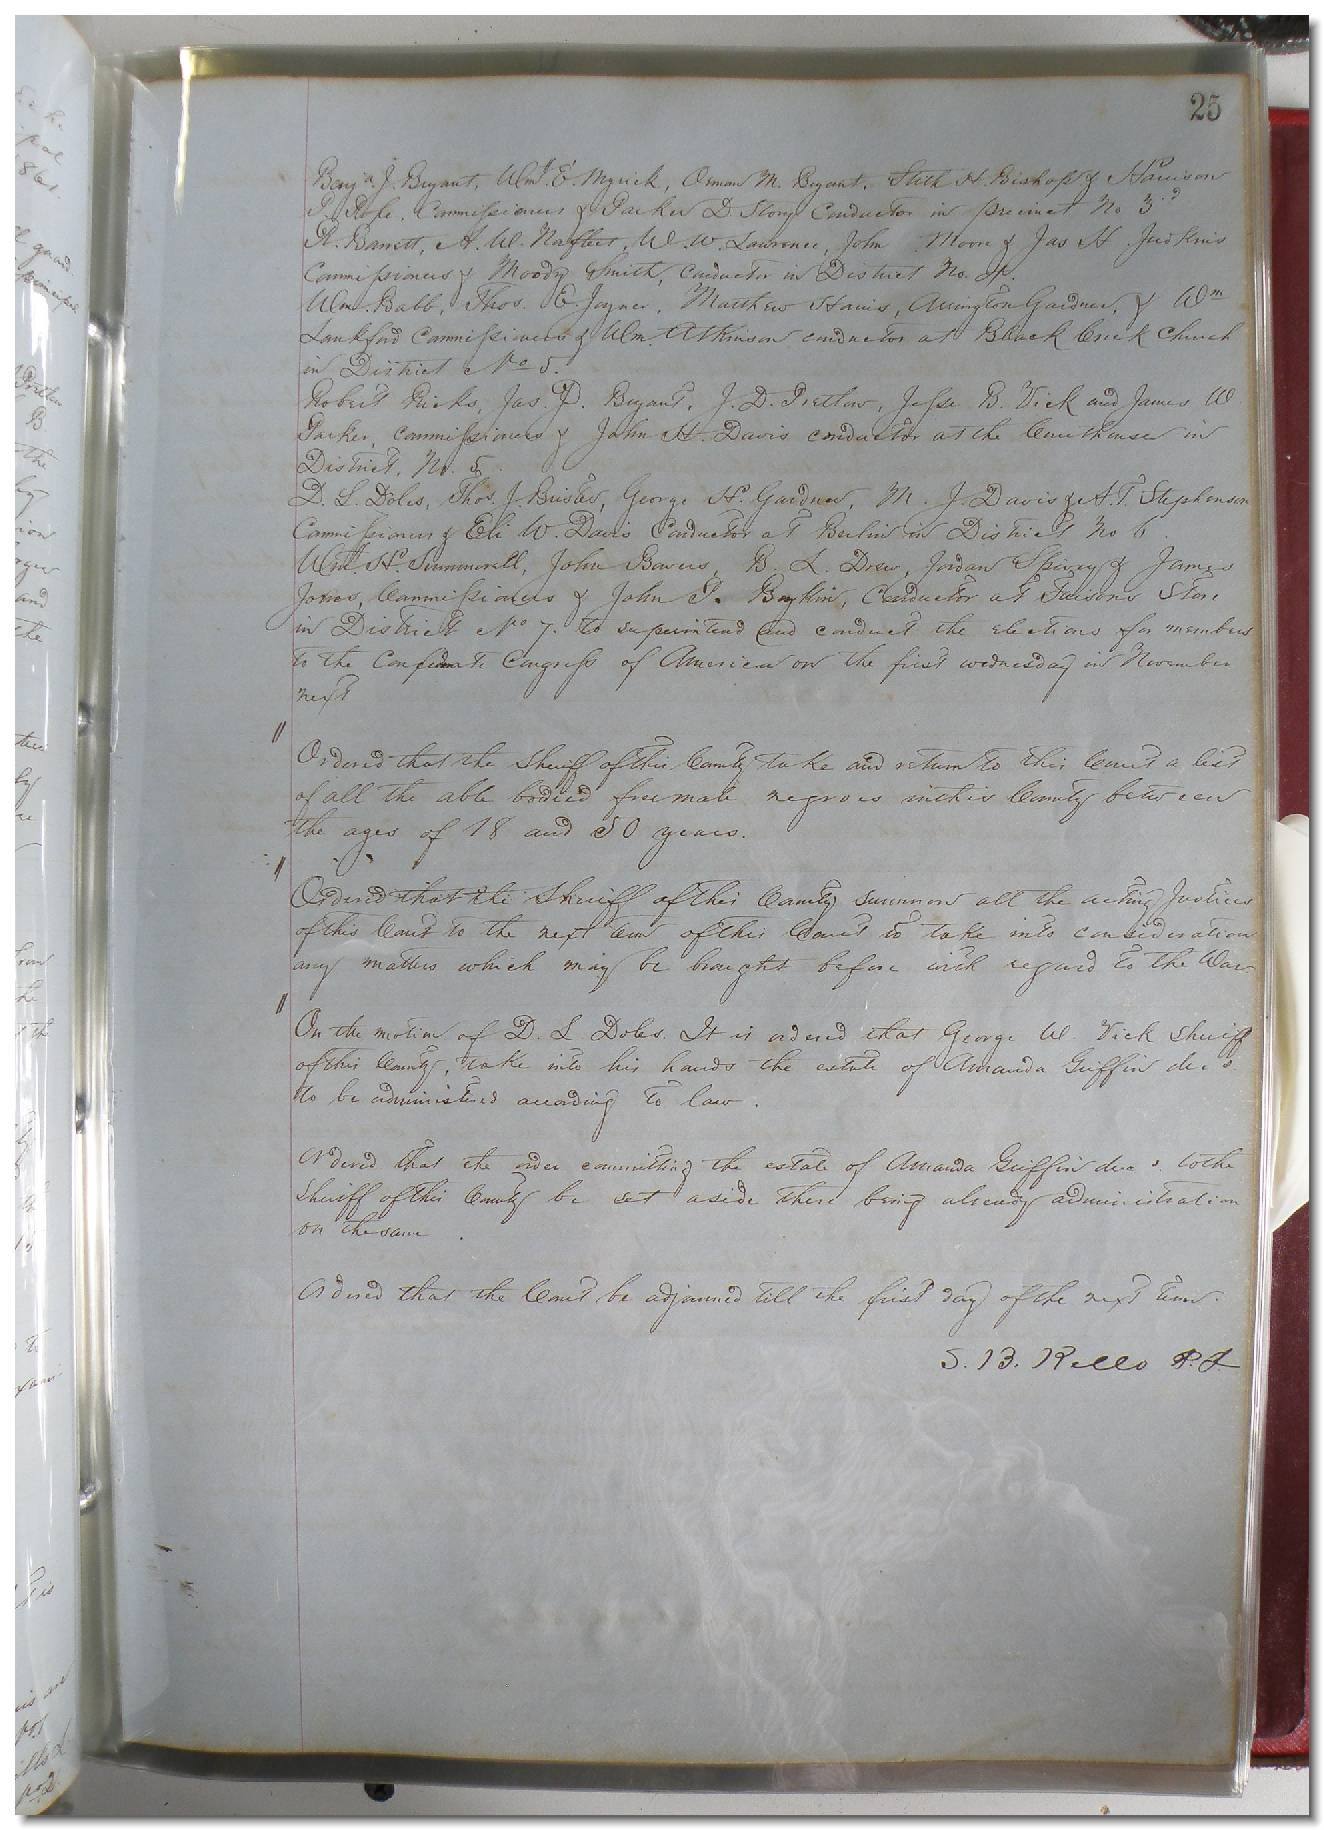 25
Benja. J. Bryant, Wm. E. Myrick, Orman M. Bryant, Stith H. Bishop & Harrison
P. Pope, Commissioners & Parker D. Story Conductor in precinct No 3d
R. Barrett, A. W. Norfleet, W. W. Lawrence, John Moore & Jas H. Judkins
Commissioners & Moody Smith, Conductor in District No. 4.
Wm. Babb, Thos. E. Joyner, Matthew Harris, Arrington Gardner, & Wm
Lankford Commissioners & Wm. Atkinson conductor at Black Creek Church
in District No 5.
Robert Ricks, Jas. P. Bryant, J. D. Pretlow, Jesse B. Vick and James W
Parker, Commissioners & John H. Davis conductor at the Courthouse in
District, No. 5.
D. L. Doles, Thos. J. Brister, George H. Gardner, M. J. Davis & A. T. Stephenson
Commissioners & Eli W. Davis Conductor at Berlin in District No 6.
Wm. H. Summerell, John Bowers, B. L. Drew, Jordan Spivey & James
Jones, Commissioners & John P. Boykin, Conductor at Faisons Store
in District No 7. to superintend and conduct the elections for members
to the Confederate Congress of America on the first wednesday in November
next
" Ordered that the Sheriff of this County take and return to this Court a list
of all the able bodied free male negroes in this County between
the ages of 18 and 50 years.
" Ordered that the Sheriff of this County summon all the acting Justices
of this Court to the next term of this Court to take into consideration
any matters which may be brought before with regard to the War
" On the motion of D. L Doles. It is ordered that George W. Vick Sheriff
of this County, take into his hands the estate of Amanda Griffin decd.
to be administered according to law.
Ordered that the order committing the estate of Amanda Griffin decd. to the
Sheriff of this County be set aside there being already administration
on the same.
Ordered that the Court be adjourned till the first day of the next term.
S. B. Kello P. J.